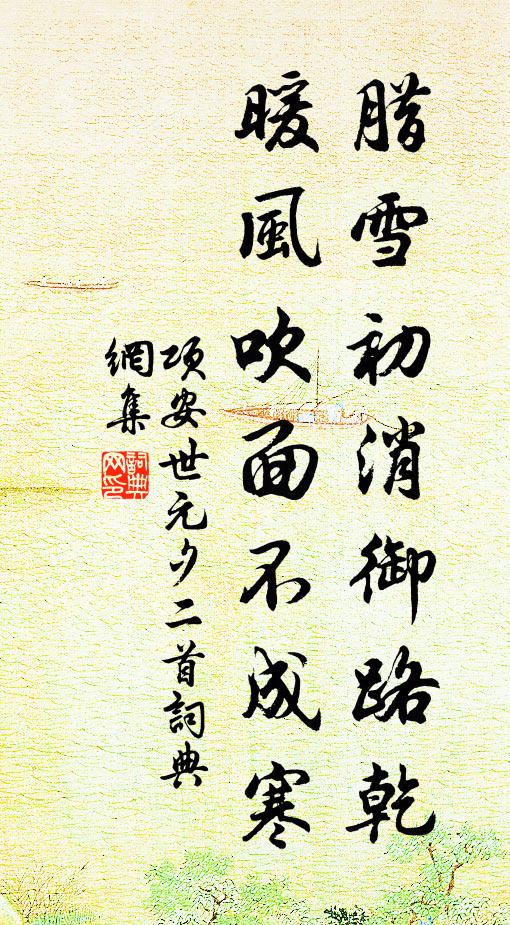 腊雪初消御路乾
暖風吹面不成寒
项安世元夕二首詞典
網集
詞典
网印